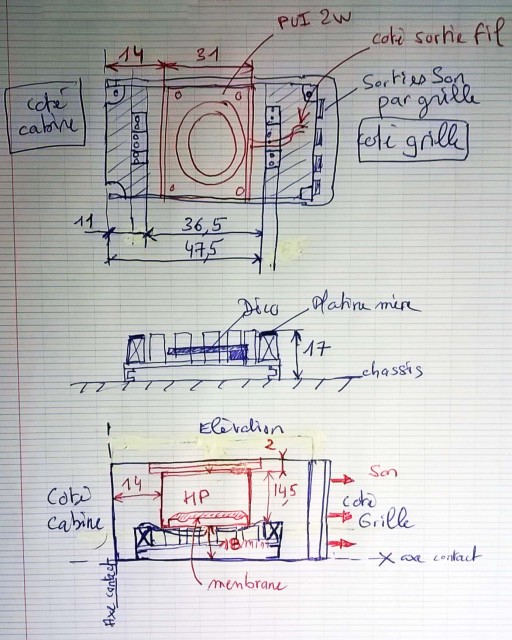 PUI 2W
14
31
coté sortie fil
coté
cabine
Sorties Son
par grille
coté grille
11
36,5
47,5
Dico
Platine mère
17
chassis
Elèvation
2
14
HP
14,5
Son
Coté
cabine
coté
Grille
18 mini
X axe contact
membrane
Axe contact